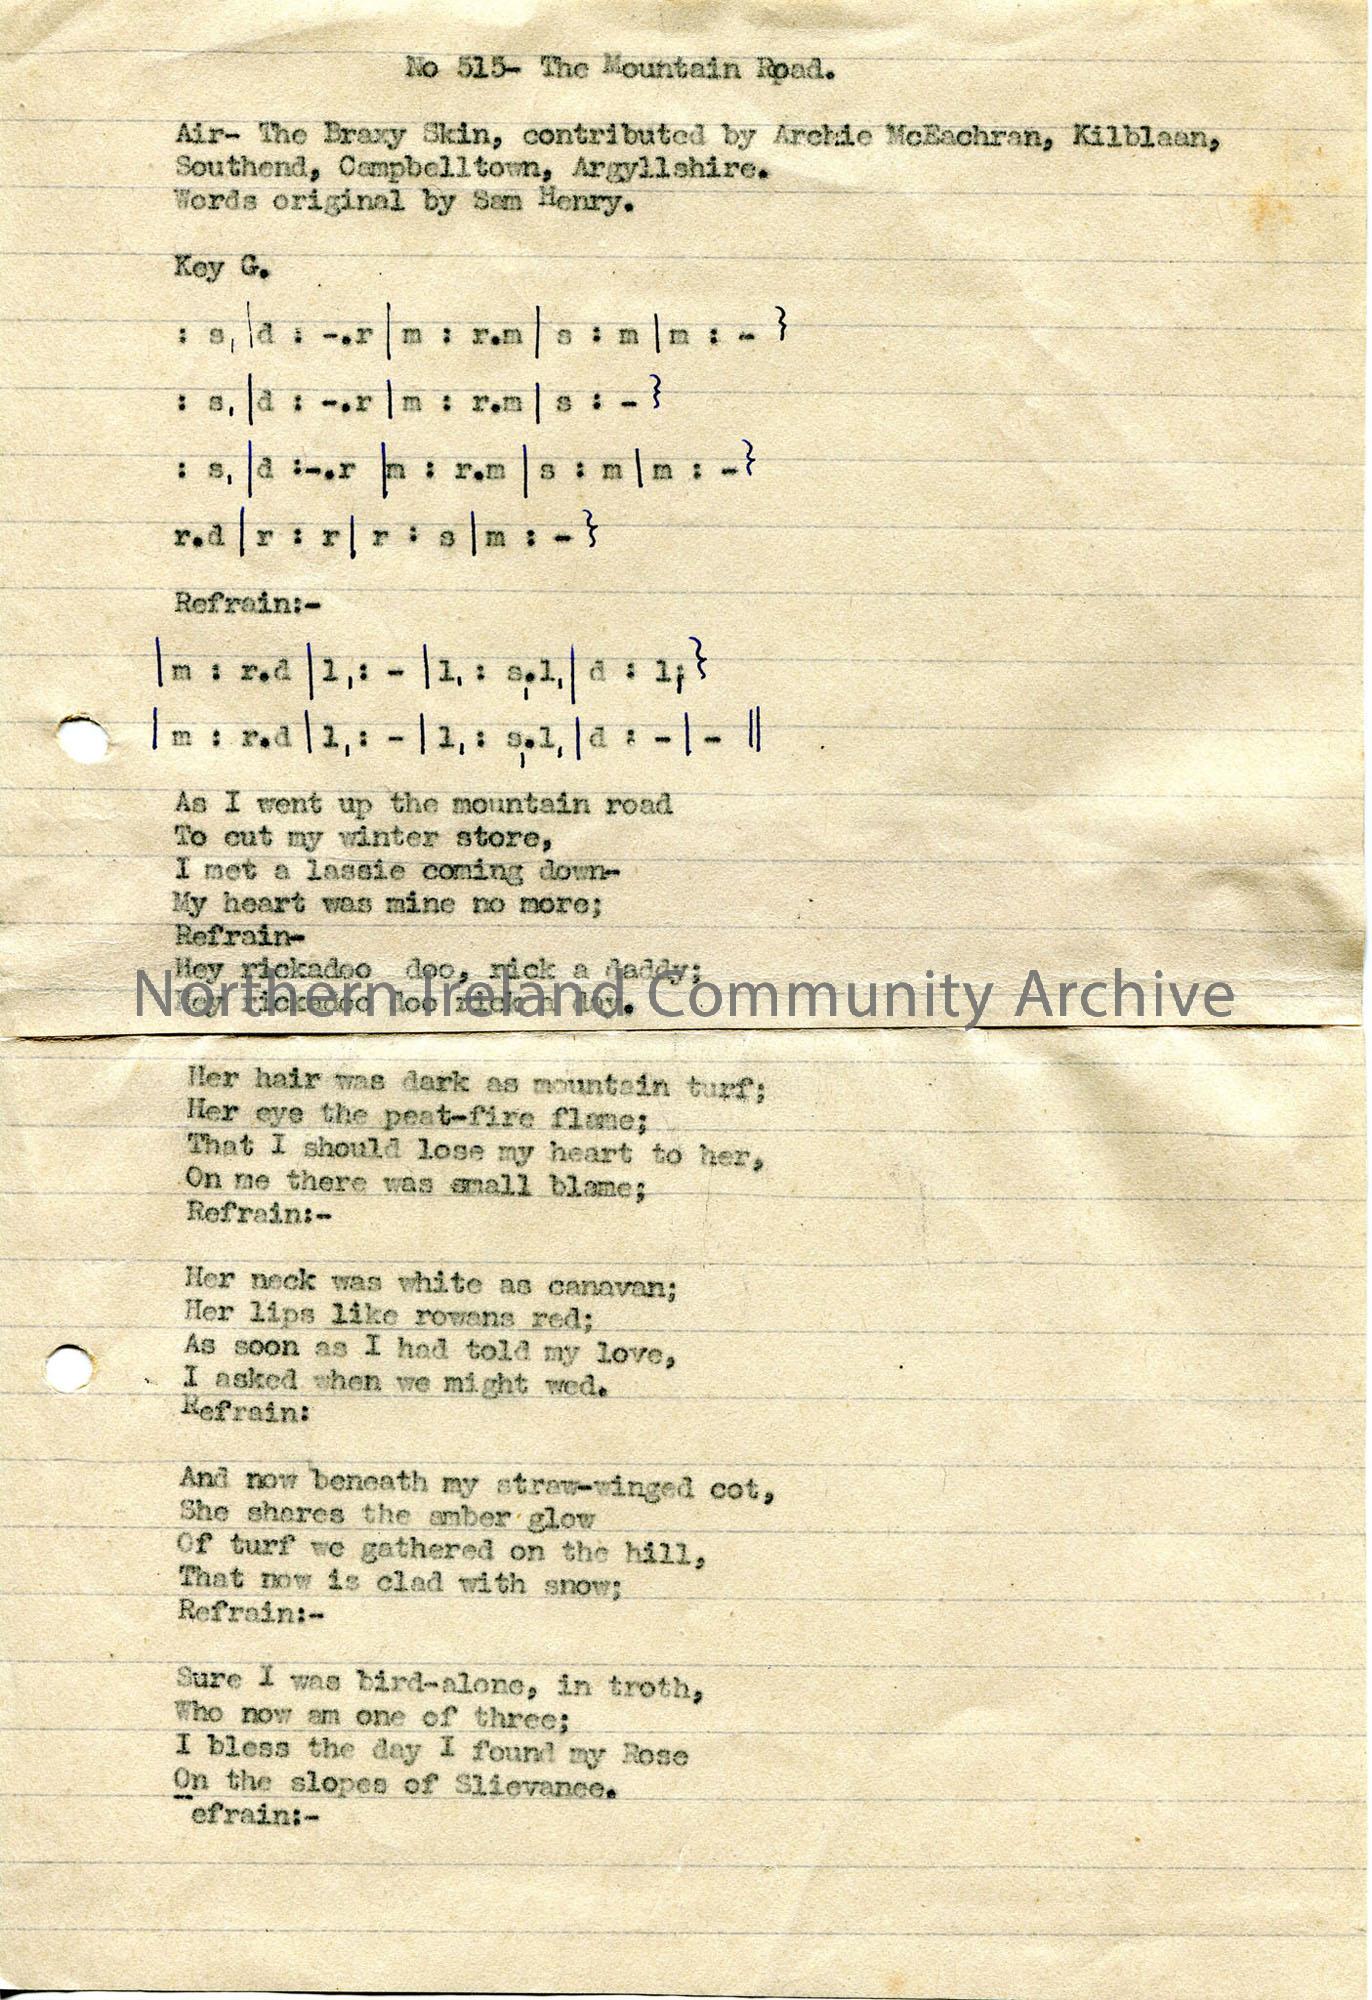 No 515- The Mountain Road.
Air- The Braxy Skin, contributed by Archie McEachran, Kilblaan,
Southend, Campbelltown, Argyllshire.
Words original by Sam Henry.
Key G.
: s, |d : -.r |m : r.m | s : m |m : - }
: s, |d : -.r |m : r.m | s : - }
: s, |d :-.r |m : r.m |s : m |m : - }
r.d |r : r| r : s |m : - }
Refrain:-
|m : r.d |l,: - |l, : s,.l,| d : l, }
|m : r.d |l,: - |l, : s,.l,|d : -| - ||
As I went up the mountain road
To cut my winter store,
I met a lassie coming down-
My heart was mine no more;
Refrain-
Hey rickadoo doo, rick a daddy;
Hey rickadoo doo rick a day.
Northern Ireland Community Archive
Her hair was dark as mountain turf;
Her eye the peat-fire flame;
That I should lose my heart to her,
On me there was small blame;
Refrain:-
Her neck was white as canavan;
Her lips like rowans red;
As soon as I had told my love,
I asked when we might wed.
Refrain:
And now beneath my straw-winged cot,
She shares the amber glow
Of turf we gathered on the hill,
That now is clad with snow;
Refrain:-
Sure I was bird-alone, in troth,
Who now am one of three;
I bless the day I found my Rose
On the slopes of Slievanee.
efrain:-